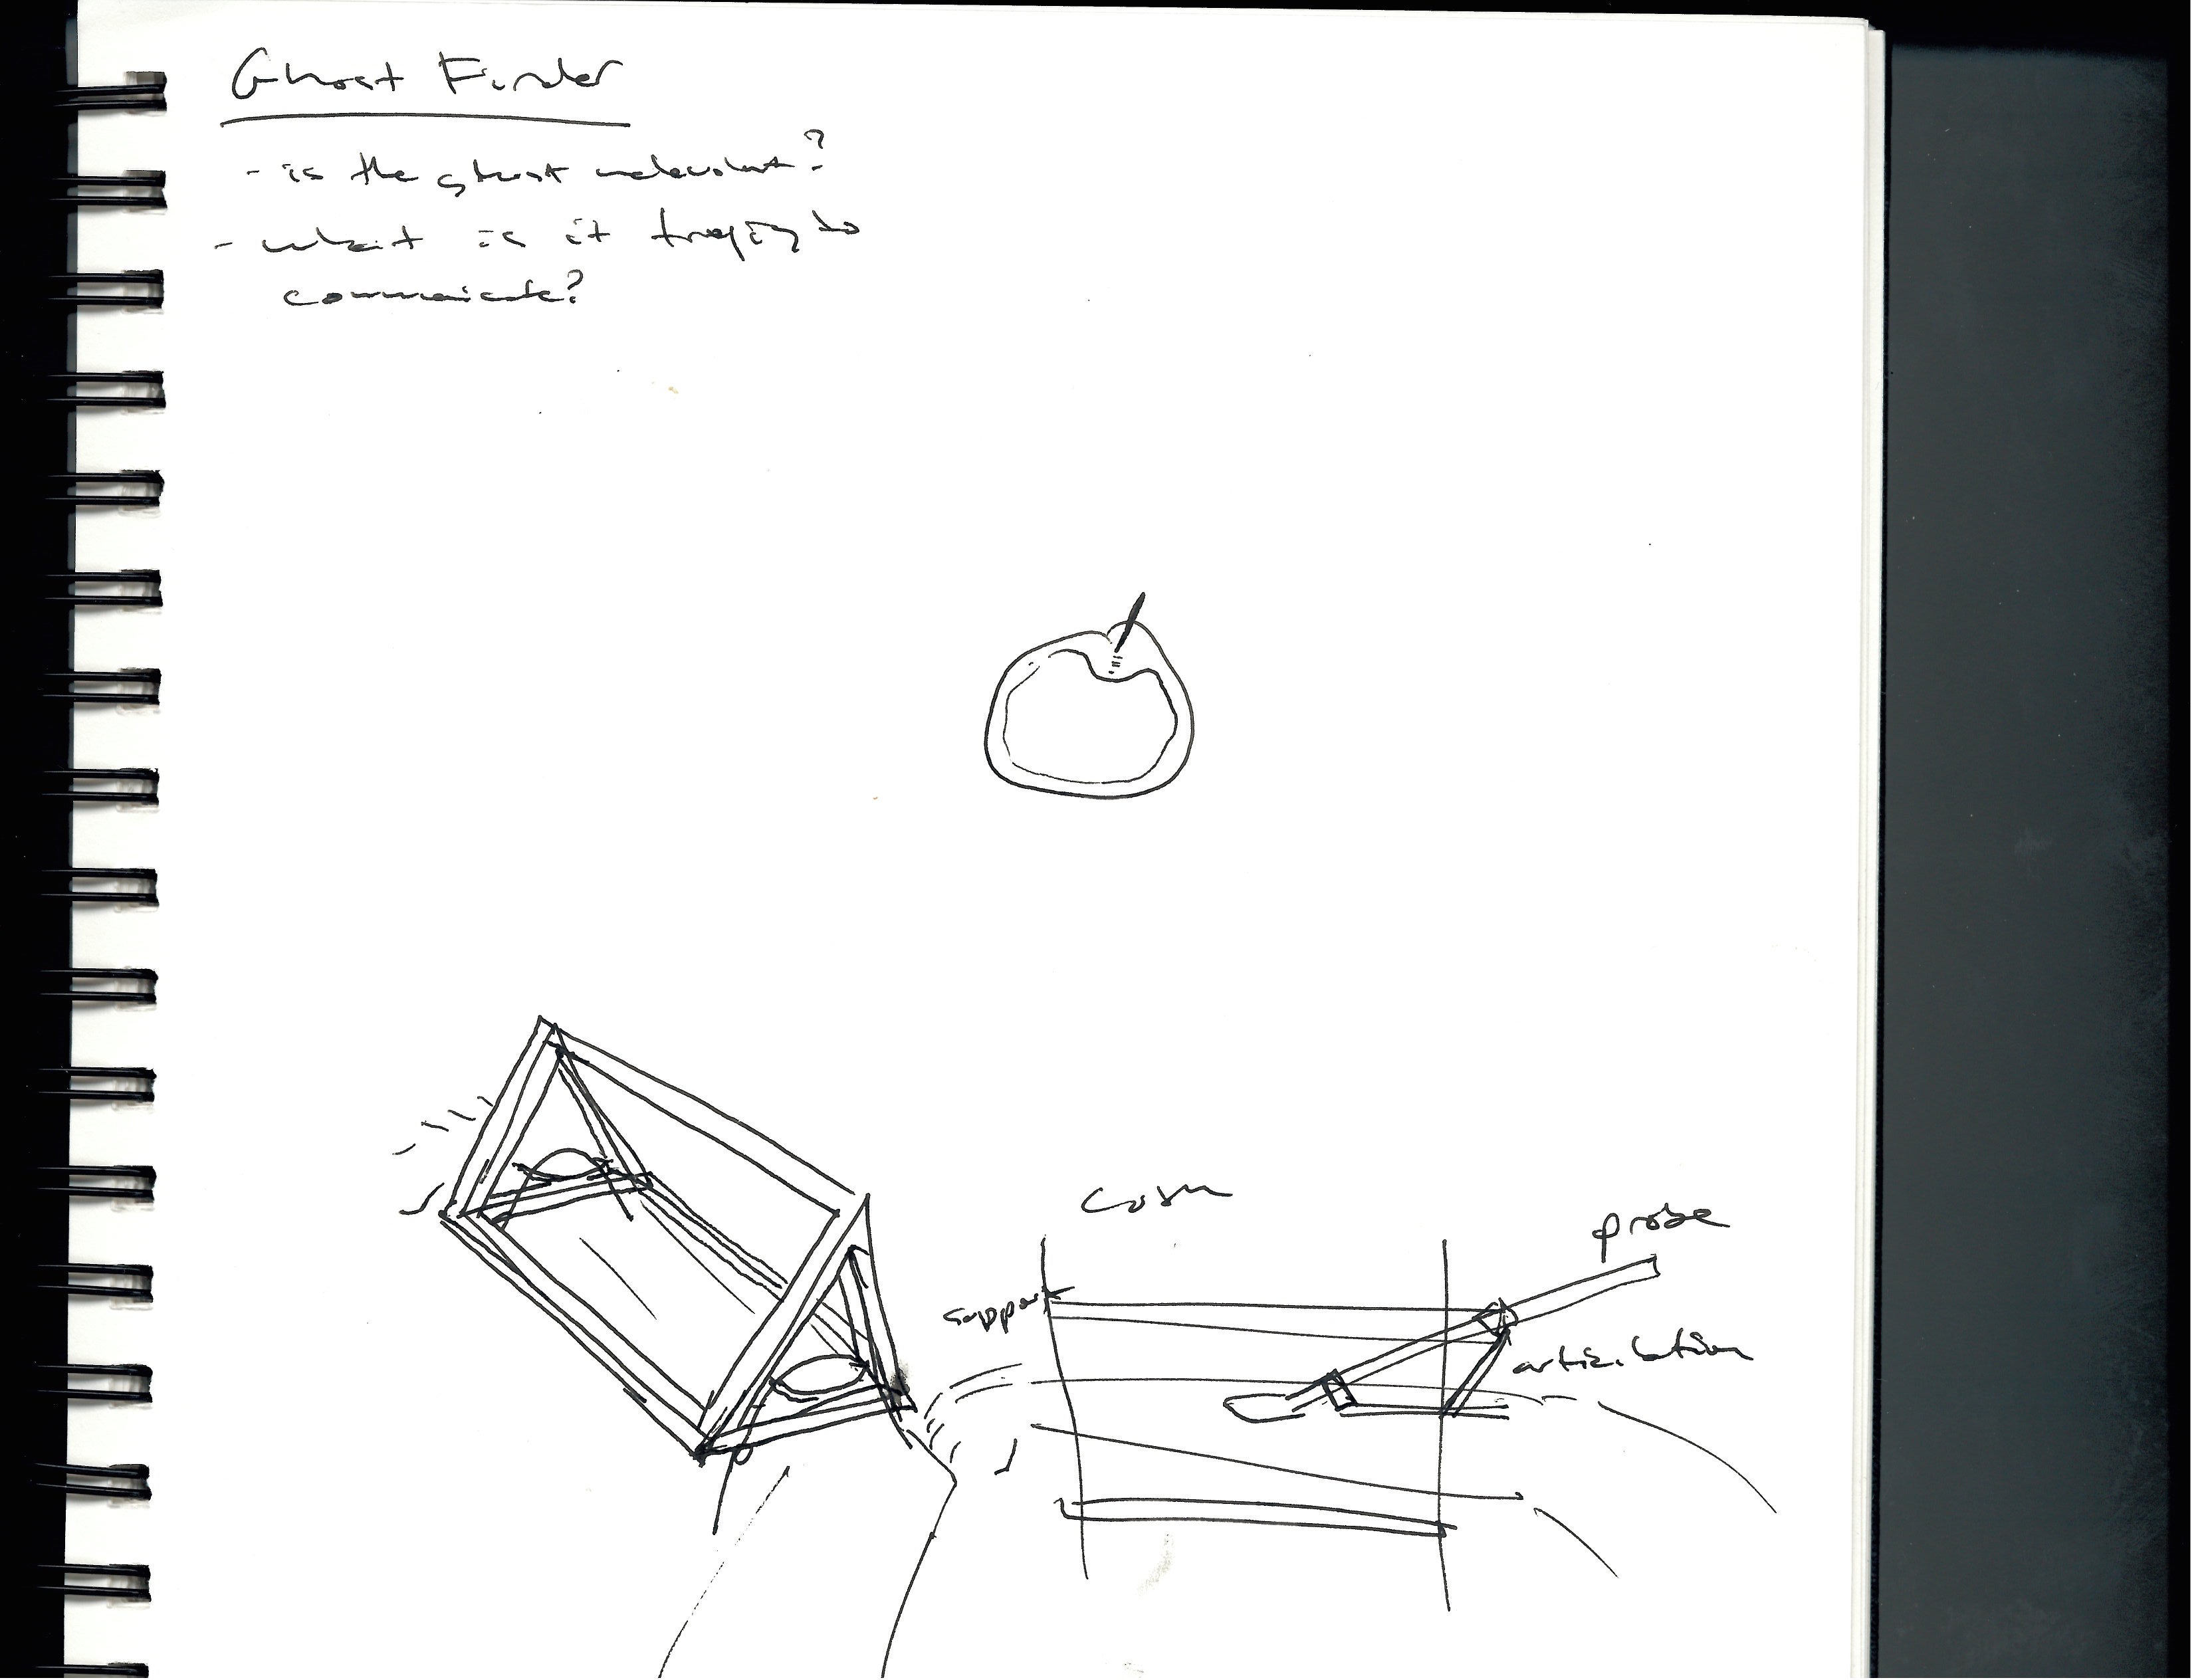 Ghost Finder
- is the ghost malevolent?
- what is it trying to
communicate?
probe
support
articulation